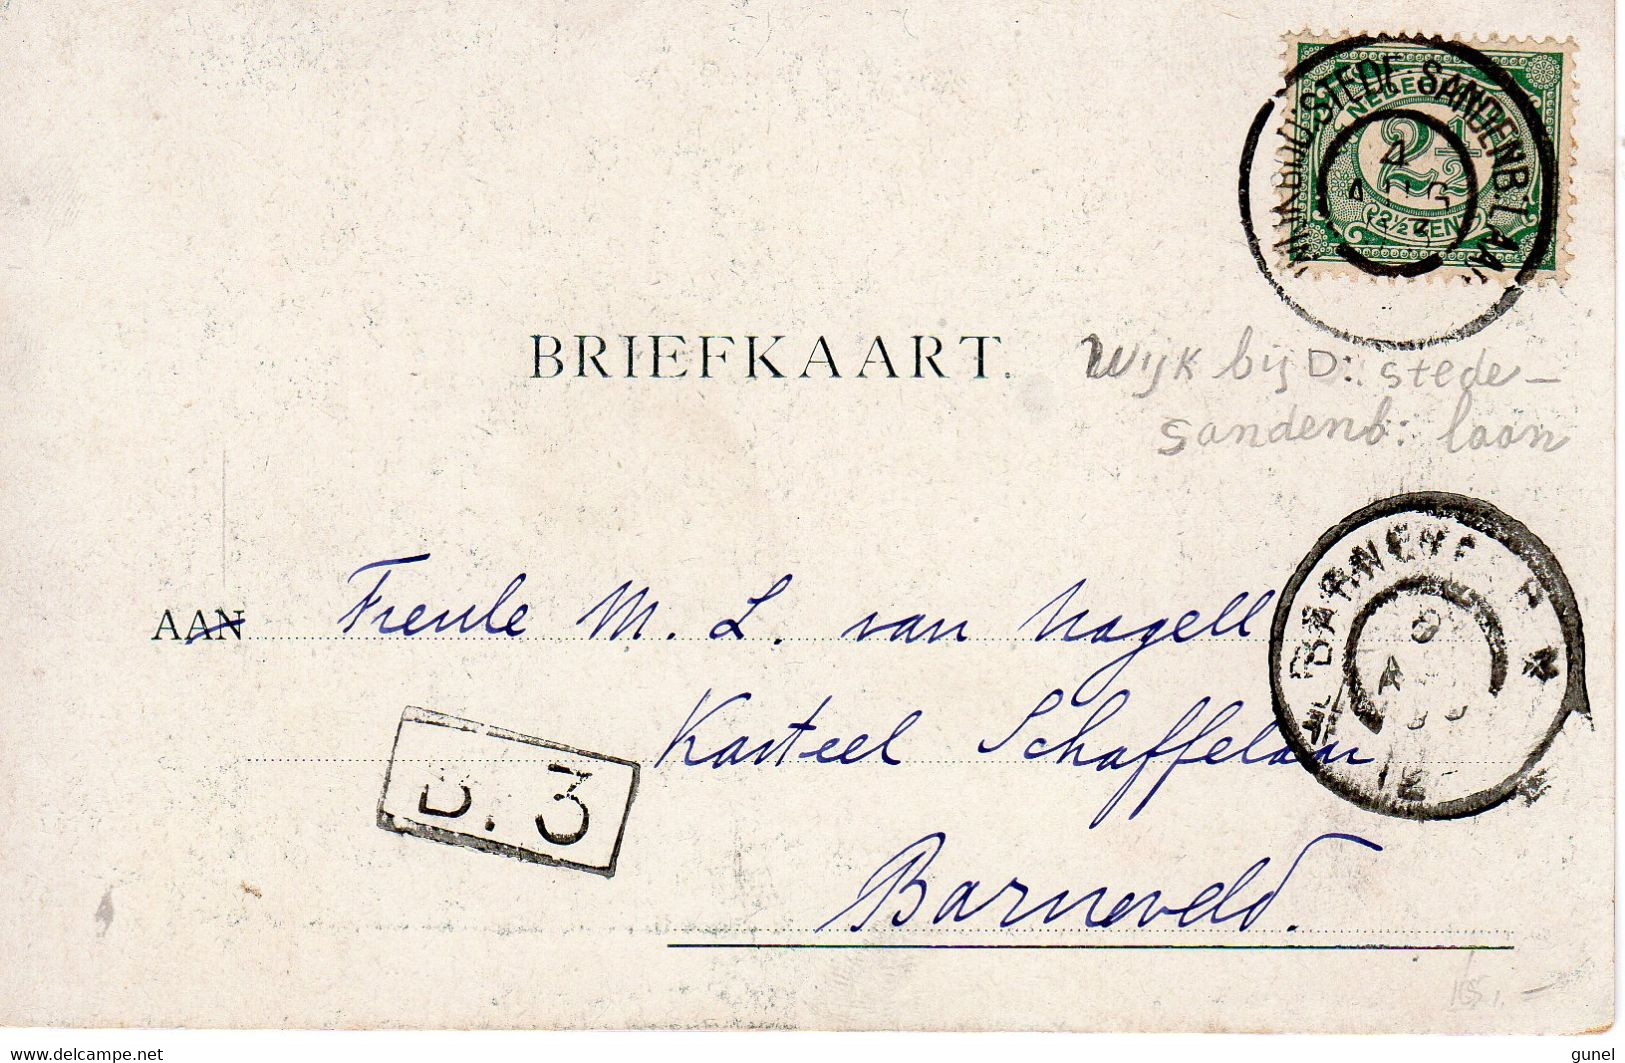 STEDE-SANDENB:LAAN
NEDE
2½
4
AUG
2½ CENT
BRIEFKAART.
Wijk bij D: stede-
Sandenb: laan
BARNEVELD
AAN Freule M. L. van Nagell
Kasteel Schaffelaar
D. 3
12
Barneveld.
www.delcampe.net
gunel